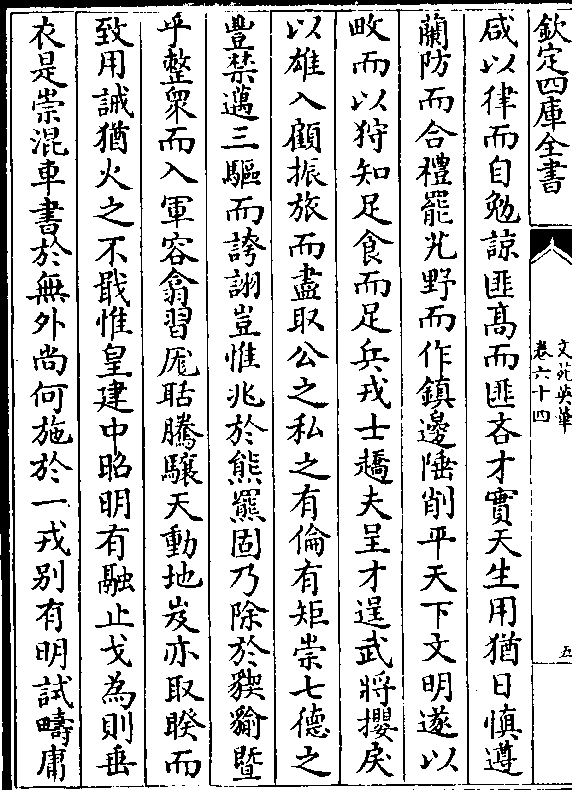 欽定四庫全書
文苑英華
卷六十四
五
咸以律而自勉諒匪髙而匪吝才實天生用猶日慎遵
蘭防而合禮罷艽野而作鎮邊陲削平天下文明遂以
畋而以狩知足食而足兵戎士趫夫呈才逞武將攖戾
以雄入顧振旅而盡取公之私之有倫有矩崇七德之
豊禁邁三驅而誇詡豈惟兆於熊羆固乃除於猰貐暨
乎整衆而入軍容翕習厖聒騰驤天動地岌亦取睽而
致用誡猶火之不戢惟皇建中昭明有融止戈為則垂
衣是崇混車書於無外尚何施於一戎别有明試疇庸